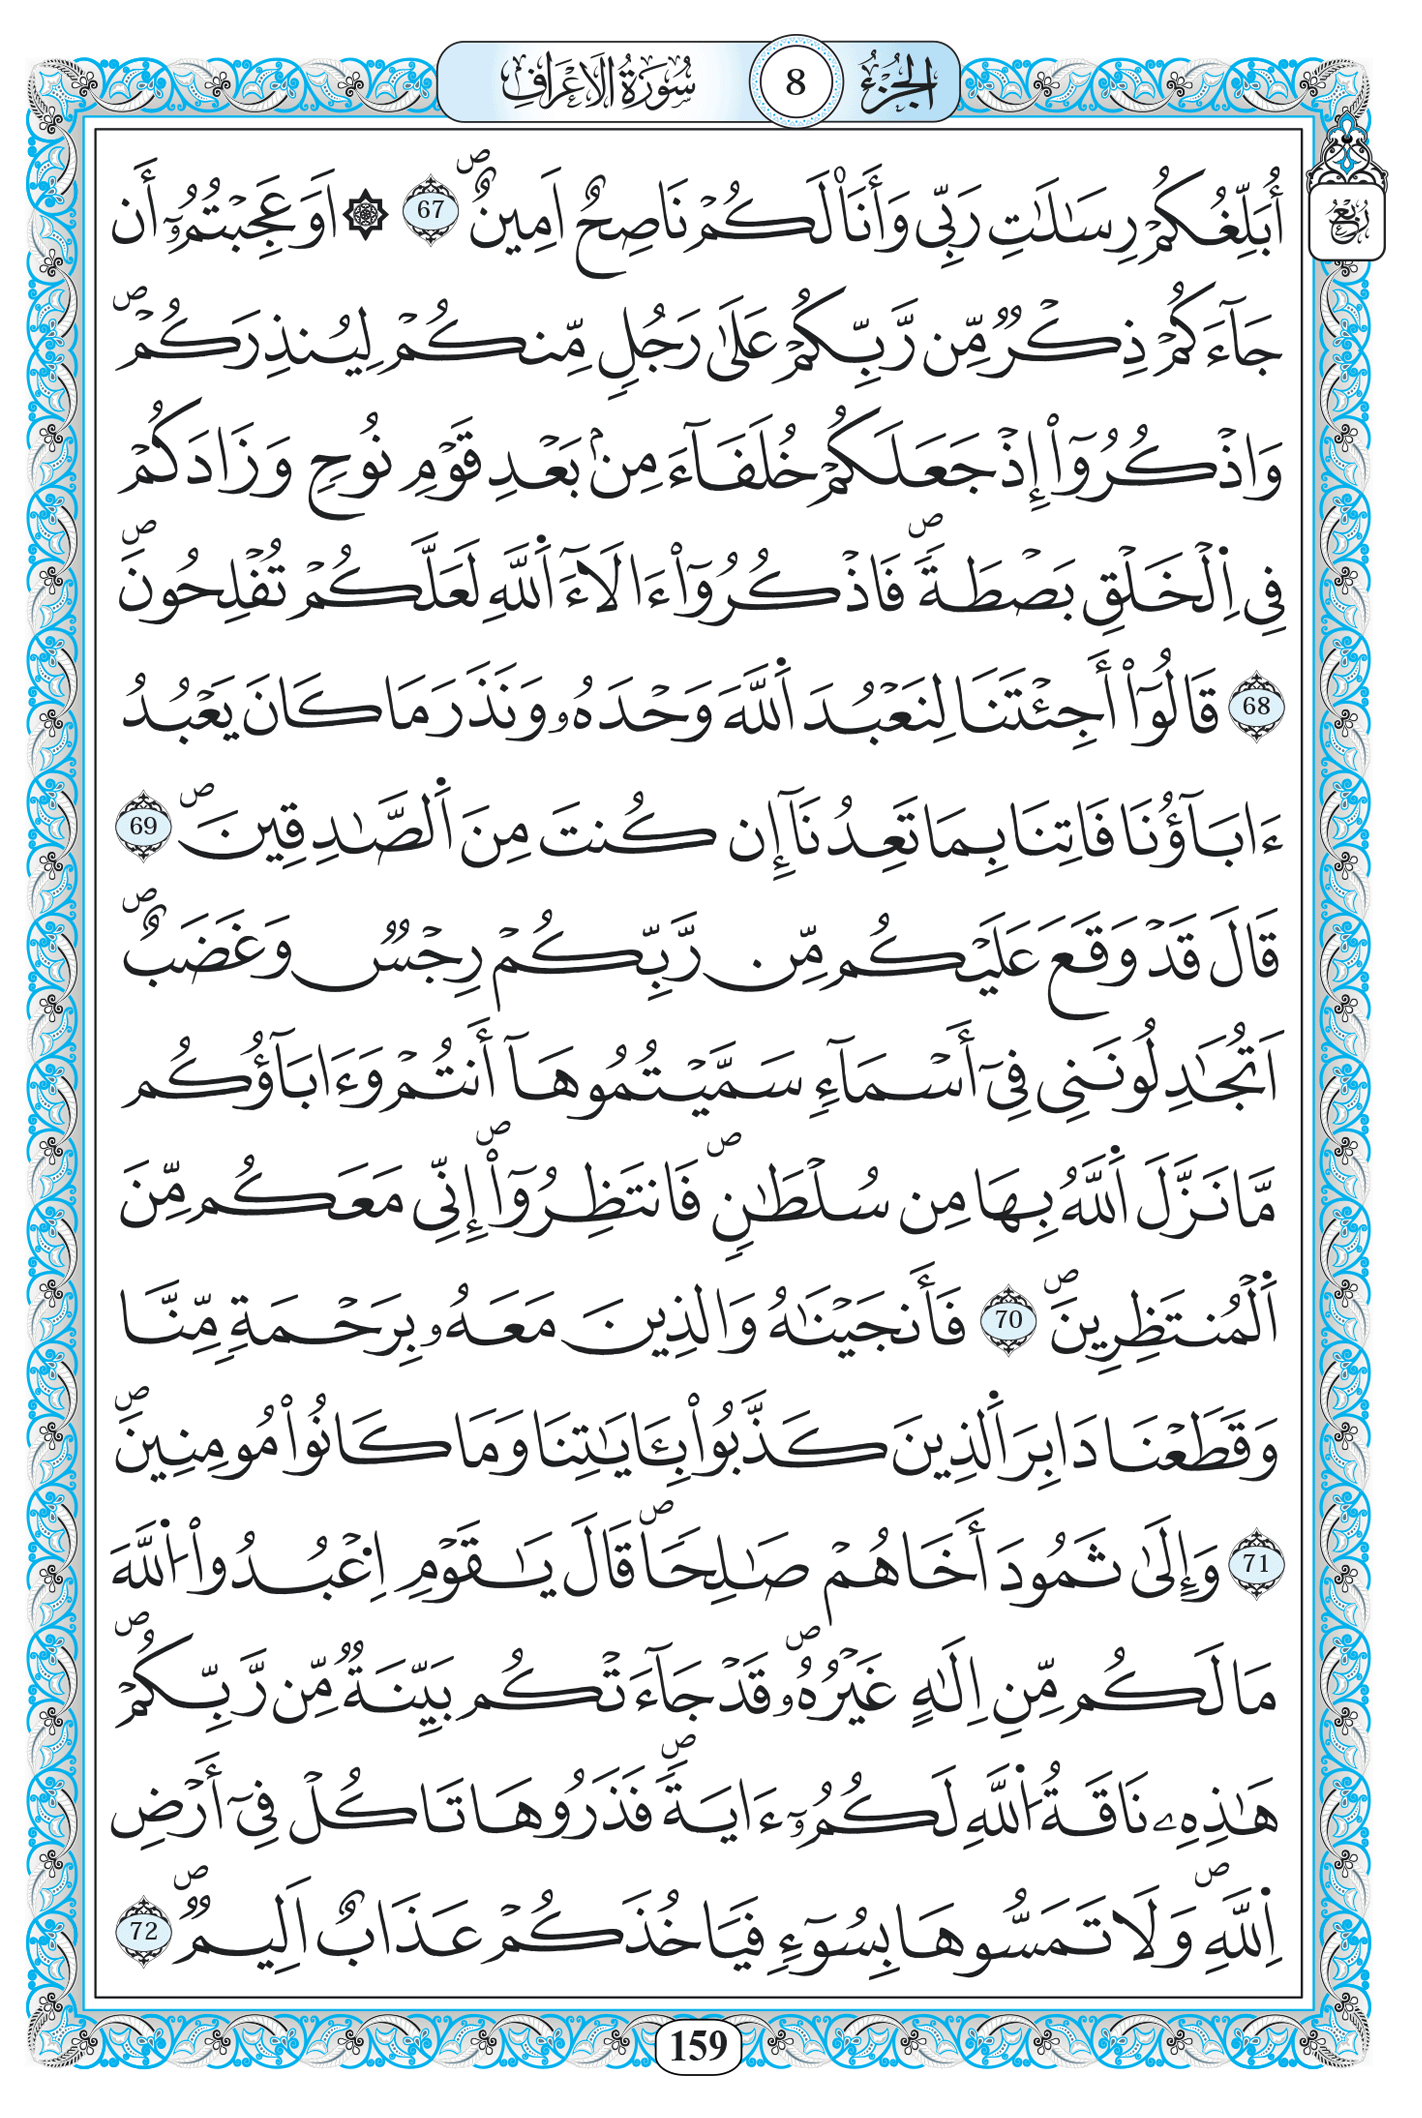 الجزء 8 سورة الاعراف
ربع
أُبَلِّغُكُمْ رِسَٰلَٰتِ رَبِّي وَأَنَا۠ لَكُمْ نَاصِحٌ اَمِينٌ ص 67 ۞ اَوَعَجِبْتُمُۥٓ أَن
جَآءَكُمْ ذِكْرٌ مِّن رَّبِّكُمْ عَلَىٰ رَجُلٍ مِّنكُمْ لِيُنذِرَكُمْ ص
وَاذْكُرُوٓا۟ إِذْ جَعَلَكُمْ خُلَفَآءَ مِنۢ بَعْدِ قَوْمِ نُوحٍ وَزَادَكُمْ
فِي اِ۬لْخَلْقِ بَصْطَةً ص فَاذْكُرُوٓا۟ ءَالَآءَ اَ۬للَّهِ لَعَلَّكُمْ تُفْلِحُونَ ص
68 قَالُوٓا۟ أَجِئْتَنَا لِنَعْبُدَ اَ۬للَّهَ وَحْدَهُۥ وَنَذَرَ مَا كَانَ يَعْبُدُ
ءَابَآؤُنَا فَاتِنَا بِمَا تَعِدُنَآ إِن كُنتَ مِنَ اَ۬لصَّٰدِقِينَ ص 69
قَالَ قَدْ وَقَعَ عَلَيْكُم مِّن رَّبِّكُمْ رِجْسٌ وَغَضَبٌ ص
اَتُجَٰدِلُونَنِي فِيٓ أَسْمَآءٍ سَمَّيْتُمُوهَآ أَنتُمْ وَءَابَآؤُكُم
مَّا نَزَّلَ اَ۬للَّهُ بِهَا مِن سُلْطَٰنٍ ص فَانتَظِرُوٓا۟ ص إِنِّي مَعَكُم مِّنَ
اَ۬لْمُنتَظِرِينَ ص 70 فَأَنجَيْنَٰهُ وَالذِينَ مَعَهُۥ بِرَحْمَةٍ مِّنَّا
وَقَطَعْنَا دَابِرَ اَ۬لذِينَ كَذَّبُوا۟ بِـَٔايَٰتِنَا وَمَا كَانُوا۟ مُومِنِينَ ص
71 وَإِلَىٰ ثَمُودَ أَخَاهُمْ صَٰلِحًا ص قَالَ يَٰقَوْمِ اِ۟عْبُدُوا۟ اُ۬للَّهَ
مَا لَكُم مِّنِ اِلَٰهٍ غَيْرُهُۥ ص قَدْ جَآءَتْكُم بَيِّنَةٌ مِّن رَّبِّكُمْ ص
هَٰذِهِۦ نَاقَةُ اُ۬للَّهِ لَكُمُۥٓ ءَايَةً ص فَذَرُوهَا تَاكُلْ فِيٓ أَرْضِ
اِ۬للَّهِ ص وَلَا تَمَسُّوهَا بِسُوٓءٍ فَيَاخُذَكُمْ عَذَابٌ اَلِيمٌ ص 72
159